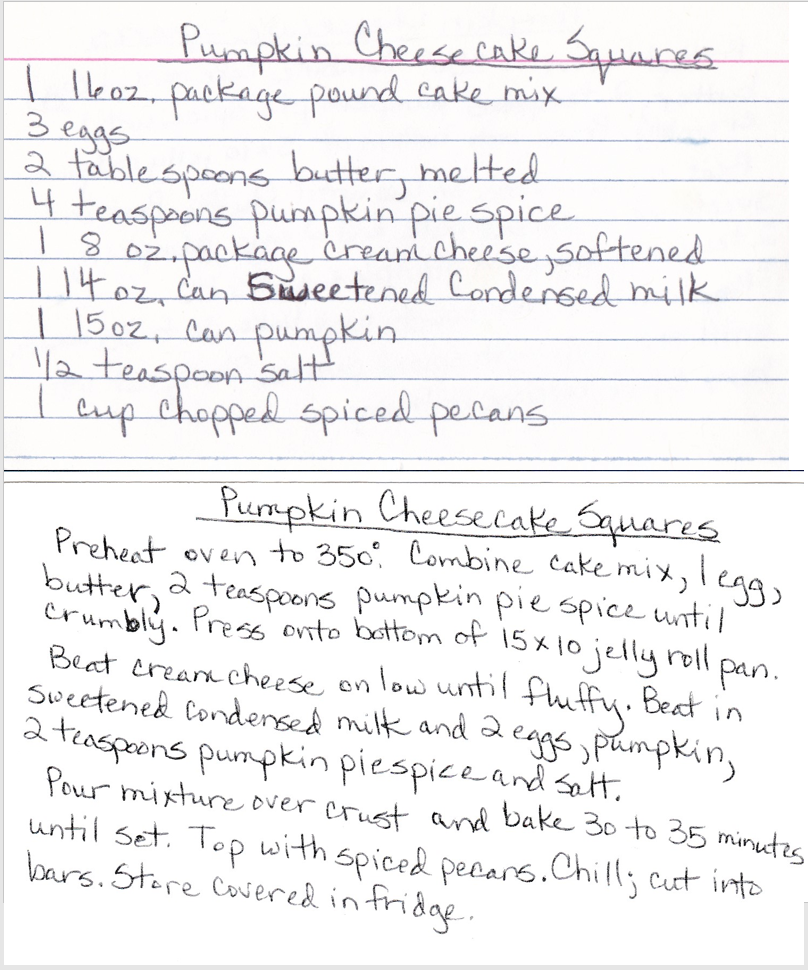 Pumpkin Cheesecake Squares
1 16oz. package pound cake mix
3 eggs
2 tablespoons butter, melted
4 teaspoons pumpkin pie spice
1 8 oz. package cream cheese, softened
1 14 oz. can Sweetened Condensed milk
1 15oz. can pumpkin
1/2 teaspoon salt
1 cup chopped spiced pecans
Pumpkin Cheesecake Squares
Preheat oven to 350°. Combine cake mix, 1 egg,
butter, 2 teaspoons pumpkin pie spice until
crumbly. Press onto bottom of 15x10 jelly roll pan.
Beat cream cheese on low until fluffy. Beat in
sweetened condensed milk and 2 eggs, pumpkin,
2 teaspoons pumpkin pie spice and salt.
Pour mixture over crust and bake 30 to 35 minutes
until set. Top with spiced pecans. Chill; cut into
bars. Store covered in fridge.